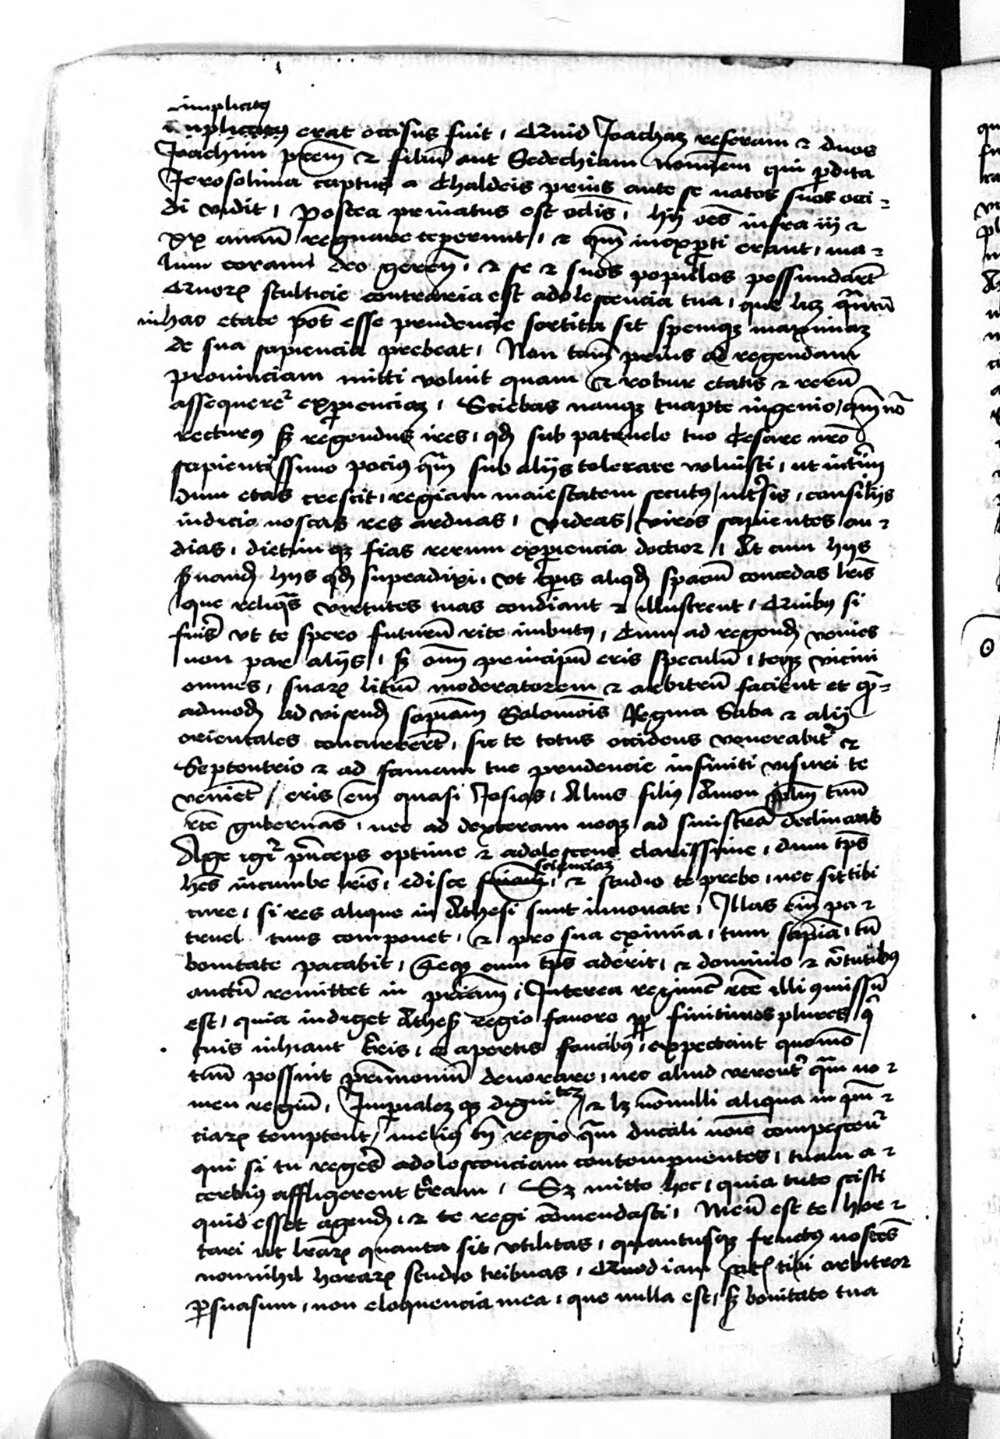 implicitus
implicatus erat occisus fuit, Quid Joachaz referam et duos
Joachim patrem et filium aut Sedechiam nominem qui perdita
Jerosolima captus a Chaldeis prius ante se natos suos occi-
di vidit, postea privatus est oculis, hij omnes infra iij et
xx annum regnare ceperunt, et quoniam inexperti erant, ma-
lum coram deo gererunt, et se et suos populos pessundarent
Quorum stulticie contraria est adolescencia tua, que licet quantum
in hac etate potest esse prudencie sortita sit spemque maximam
de sua sapiencia prebeat, Non tamen prius ad regendam
provinciam mitti voluit quam et robur etatis et rerum
assequeretur experienciam, Sciebas namque tuapte ingenio, quoniam non
recturus sed regendus ires, quod sub patruele tuo Cesare nostro
sapientissimo pocius quam sub aliis tolerare voluisti, ut interim
dum etas crescit, regiam maiestatem secutus, intersis consiliis
iudicio noscas res arduas, videas viros sapientes au-
dias, dietimque fias rerum experiencia doctior, At cum hijs
servandum hijs quod supradixi, ut temporis aliquod spacium concedas literis
que reliquas virtutes tuas condiant et illustrent, Quibus si
fueris ut te spero futurum rite imbutus, Cum ad regendum venies
non par aliis, sed omnium principum eris speculum, teque vicini
omnes, suarum litium moderatorem et arbitrum facient et quem-
admodum ad visendum sapienciam Salomonis Regina Saba et alij
orientales concurrerent, sic te totus occidens venerabitur et
Septentrio et ad famam tue prudencie infiniti visuri te
venient, eris enim quasi Josias, Alius filius Amon populum tuum
recte gubernans, nec ad dexteram neque ad sinistram declinans
Age igitur princeps optime et adolescens clarissime, dum tempus
habes incumbe literis, edisce scienciam, et studio te prebe, nec sit tibi
cure, si res alique in Athesi sunt innovate, Illas enim pa-
truel tuus componet, et pro sua eximia, tum sapiencia, tum
bonitate pacabit, Teque cum tempus aderit, et dominio et virtutibus
auctum remittet in patriam, Interea regimen recte illi commissum
est, quia indiget Athesis regio favore propter finitimos plures, qui
tuis inhiant terris, et apertis faucibus, expectant quomodo
tuum possint patrimonium devorare, nec aliud verentur quam no-
men regium, Imperialemque dignitatem, et licet nonnulli aliqua in provin-
ciarum temptent, melius tamen regio quam ducali nomine compescentur
qui si tu regeres adolescenciam contempnentes, tuam a-
cerbius affligerent terram, Sed mitto hec, quia tute scisti
quid esset agendum, et te regi commendasti, Meum est te hor-
tari ut literarum quanta sit utilitas, quantusque fructus noscens
nonnihil horarum studio tribuas, Quod iam satis tibi arbitror
persuasum, non eloquencia mea, que nulla est, sed bonitate tua